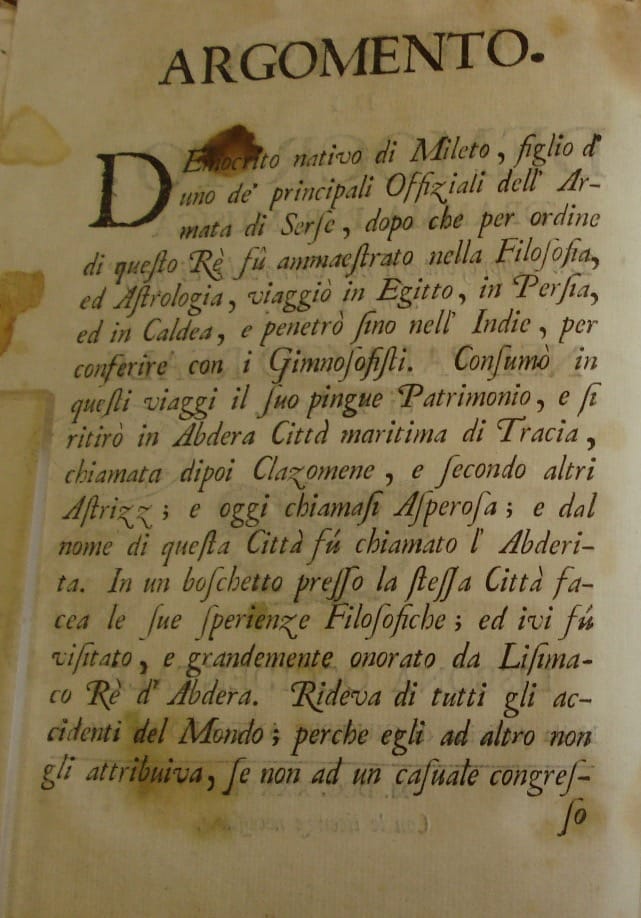 ARGOMENTO.
DEmocrito nativo di Mileto, figlio d'
uno de' principali Offiziali dell' Ar-
mata di Serſe, dopo che per ordine
di queſto Rè fû ammaeſtrato nella Filoſofia,
ed Aſtrologia, viaggiò in Egitto, in Perſia,
ed in Caldea, e penetrò ſino nell' Indie, per
conferire con i Gimnoſofiſti. Conſumò in
queſti viaggi il ſuo pingue Patrimonio, e ſi
ritirò in Abdera Città maritima di Tracia,
chiamata dipoi Clazomene, e ſecondo altri
Aſtrizz; e oggi chiamaſi Aſperoſa; e dal
nome di queſta Città fú chiamato l' Abderi-
ta. In un boſchetto preſſo la ſteſſa Città fa-
cea le ſue ſperienze Filoſofiche; ed ivi fú
viſitato, e grandemente onorato da Liſima-
co Rè d' Abdera. Rideva di tutti gli ac-
cidenti del Mondo; perche egli ad altro non
gli attribuiva, ſe non ad un caſuale congreſ-
ſo